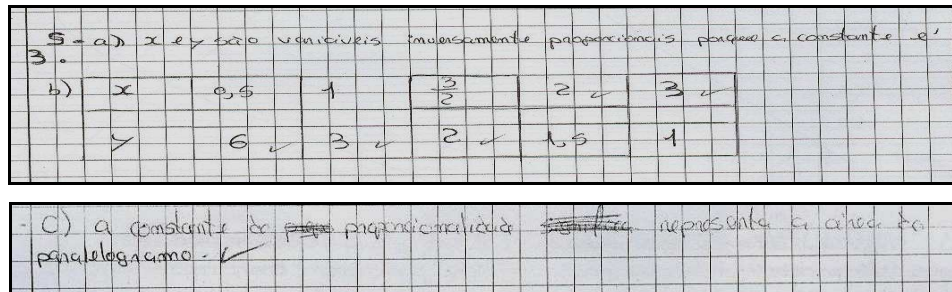 5 - a) x e y são variáveis inversamente proporcionais porque a constante é
3.
b) x 0,5 1 3/2 2 3
y 6 3 2 1,5 1
c) a constante de proporcionalidade representa a área do
paralelogramo.